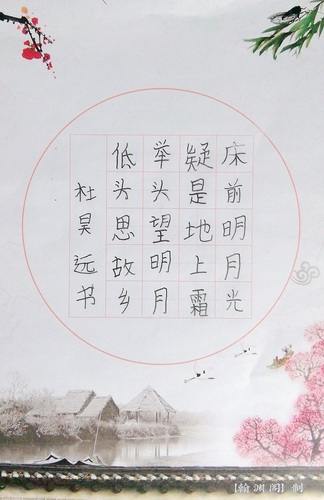 床前明月光
疑是地上霜
举头望明月
低头思故乡
杜昊远书
【翰渊阁】制